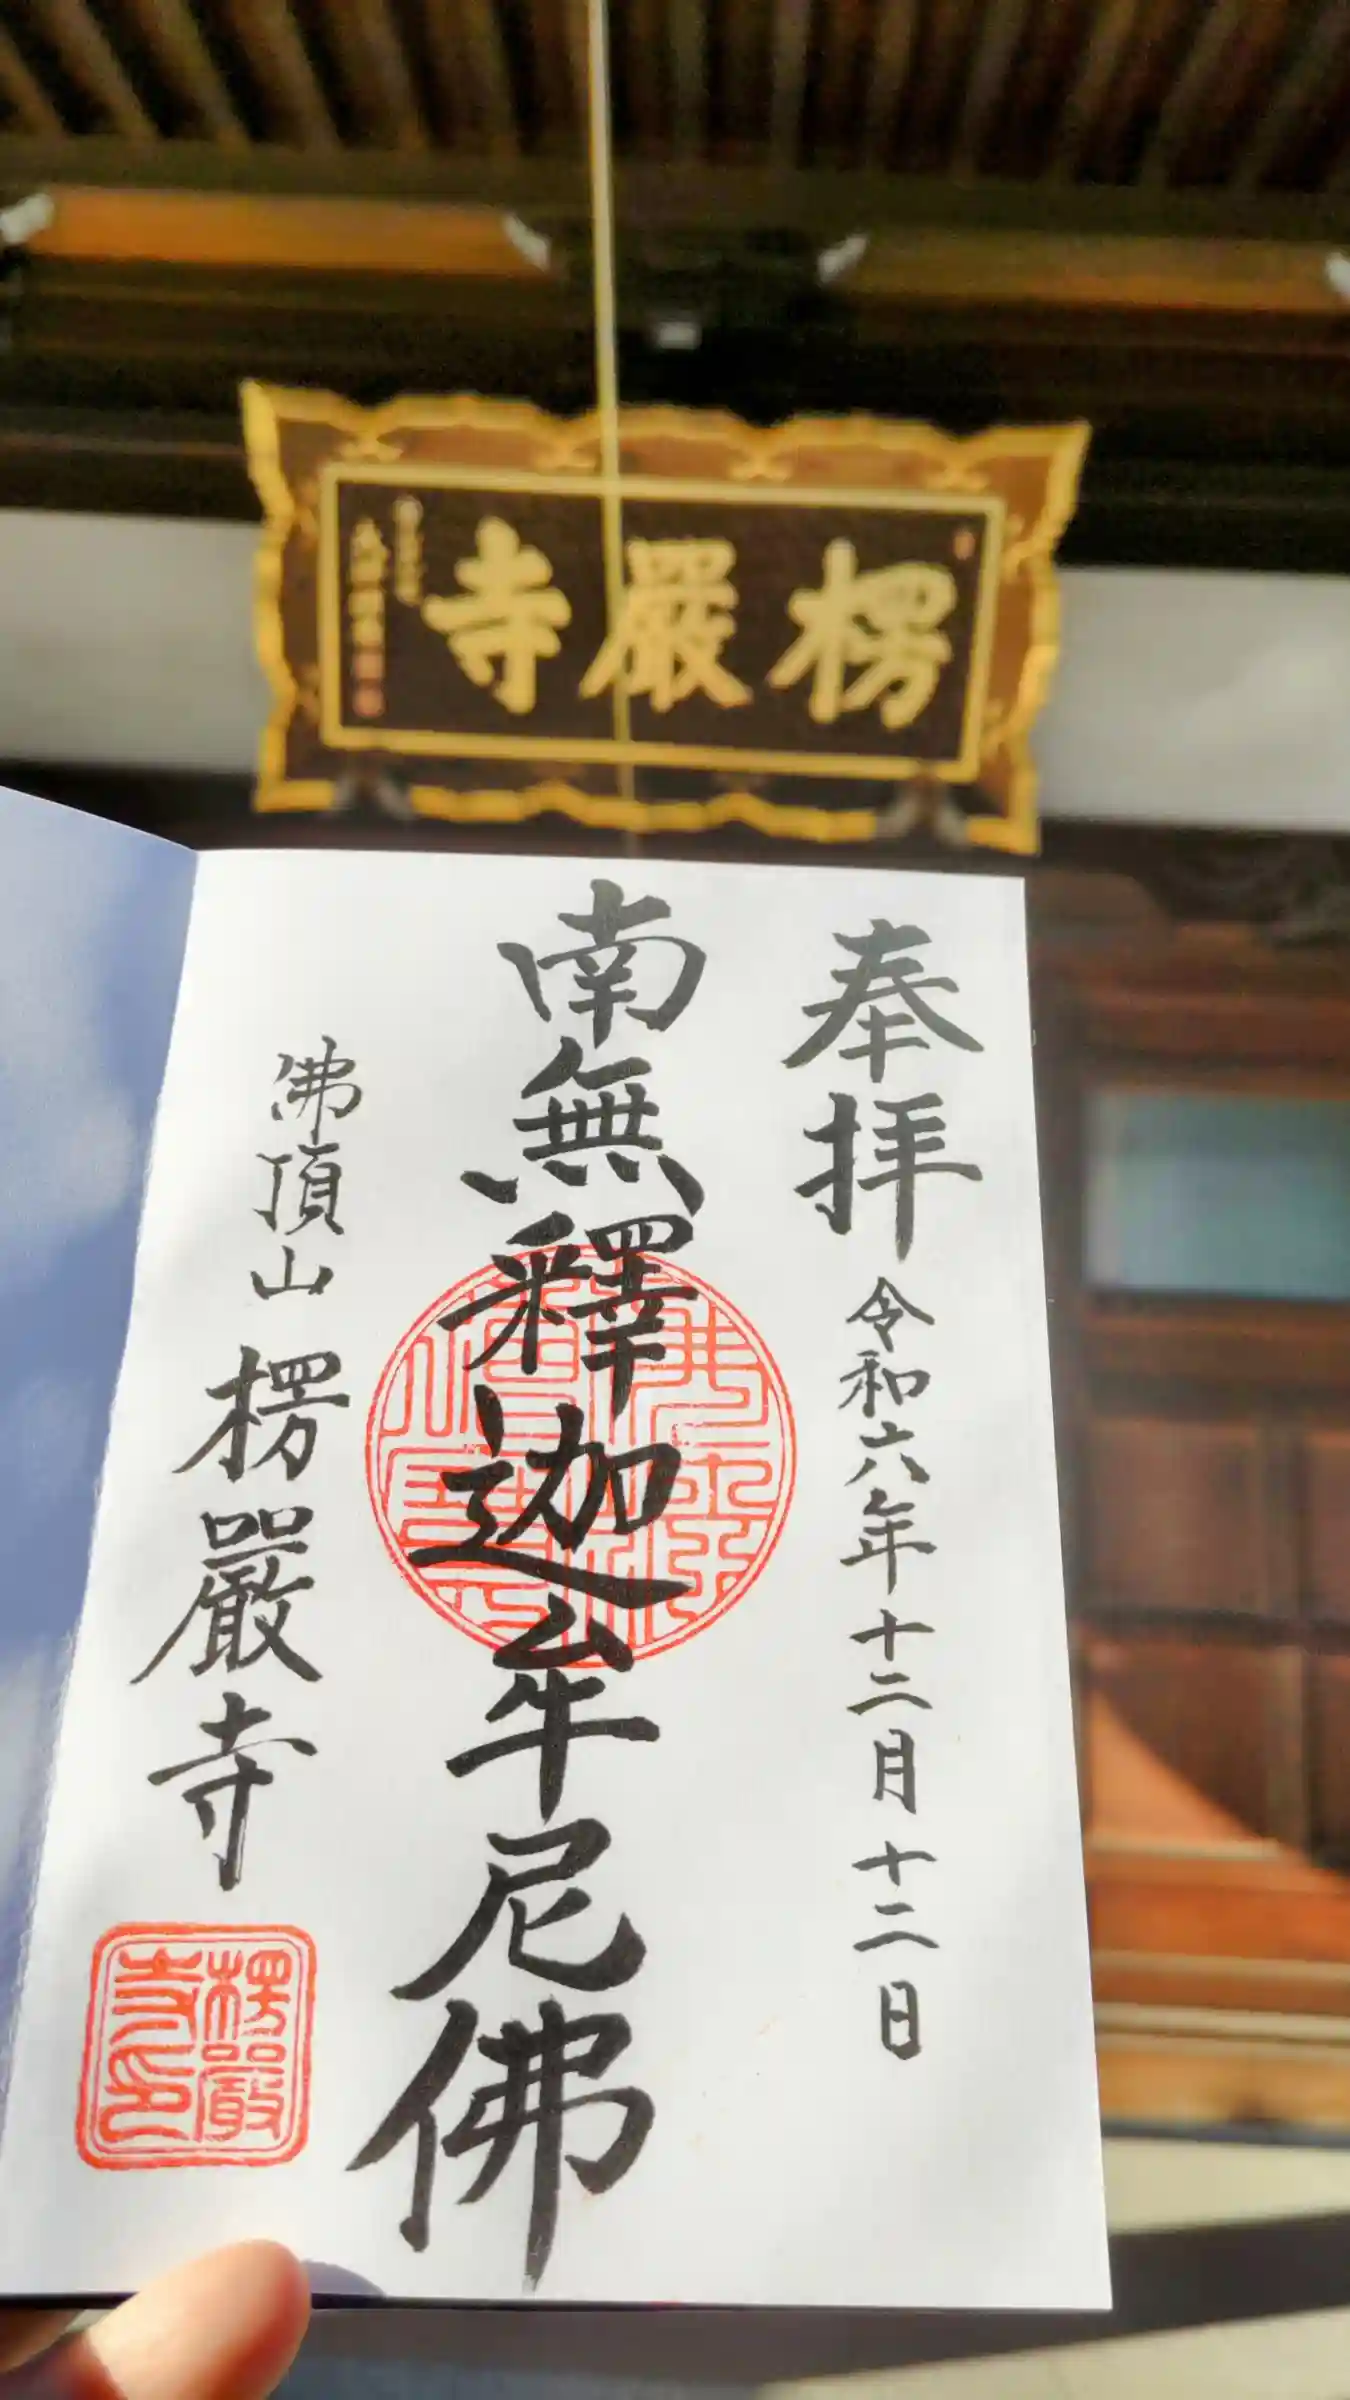 楞嚴寺
奉拝 令和六年十二月十二日
南無釋迦牟尼佛
佛頂山 楞嚴寺
楞嚴
寺印